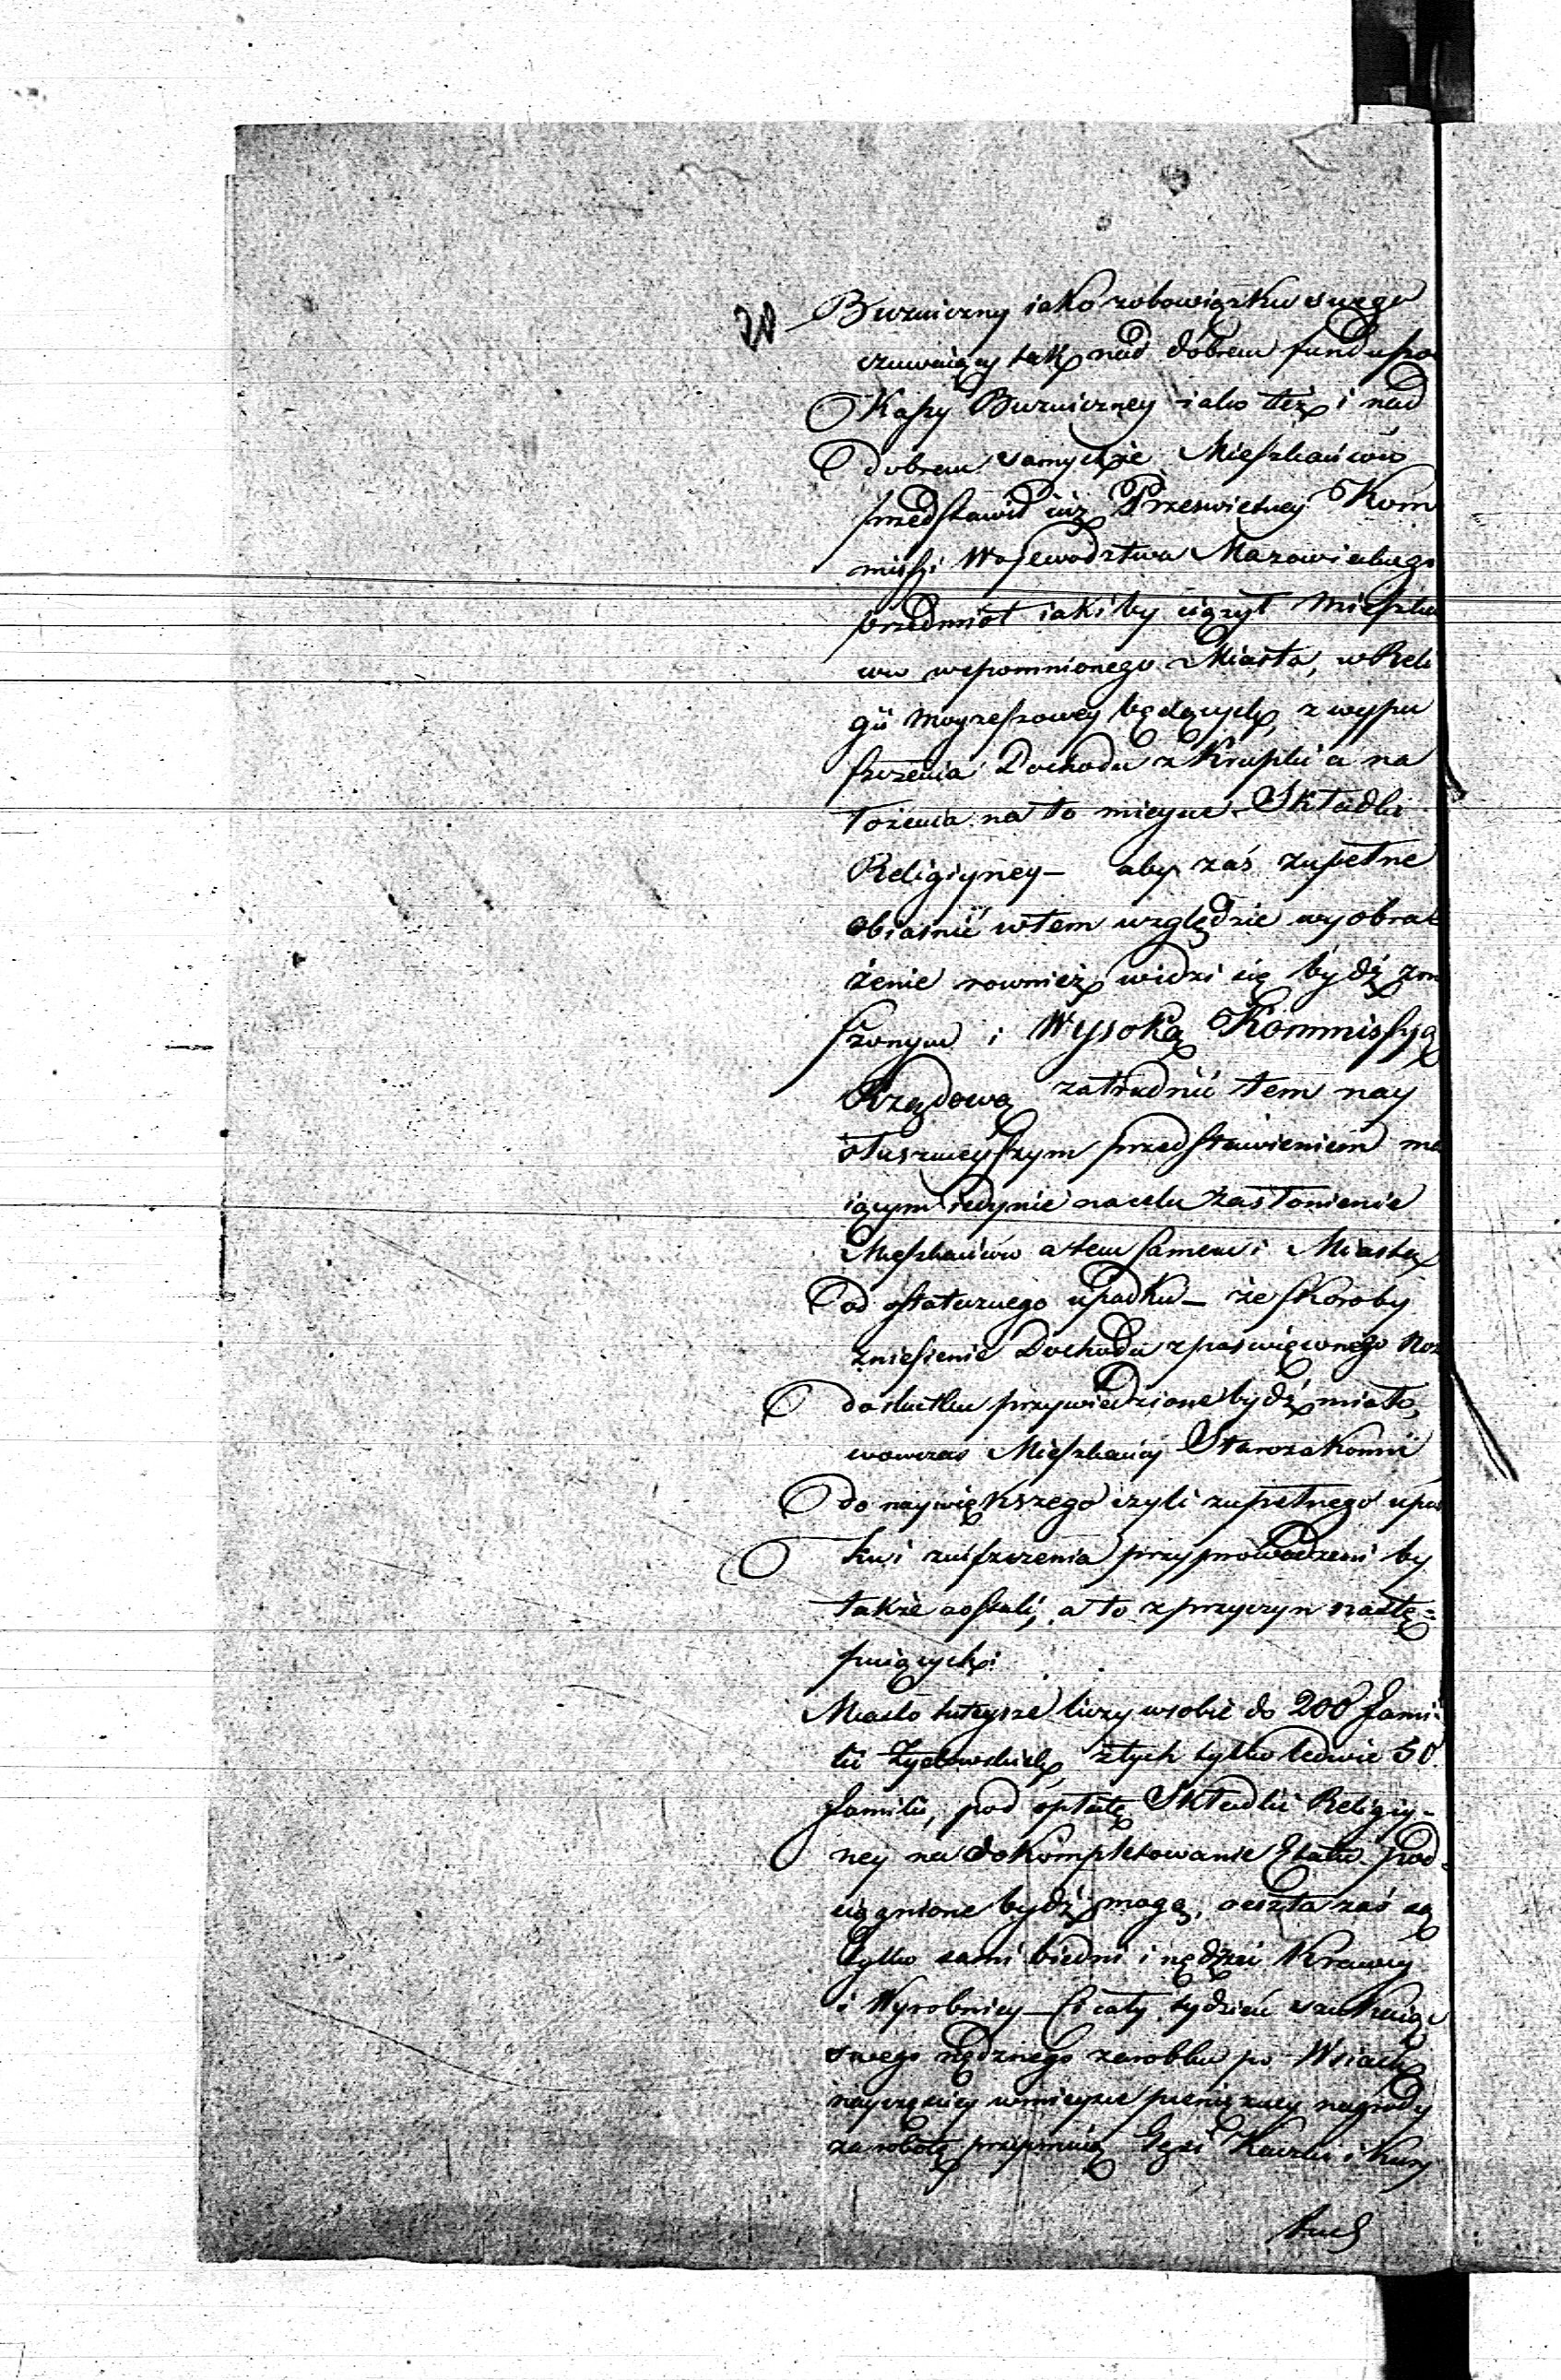 20
Bużniczny iako zobowiązku swego
czuwaiący tak nad dobrem funduszo
Kassy Bużniczney iako też i nad
dobrem samychże Mieszkańców
przedstawił iuż Prześwietney Kom
missyi Województwa Mazowieckiego
przedmiot iakiby ciążył Mieszkań
ców wspomnionego Miasta, w Reli
gii Moyżeszowey będących, z wypu
szczenia Dochodu z Krupki a na
łożenia na to mieysce Składki
Religiyney – aby zaś zupełne
obiaśnić w tem względzie wyobra
żenie rownież widzi się bydź zmu
szonym i Wysoką Kommissyą
Rządową zatrudnić tem nay
słusznieyszym przedstawieniem ma
iącym iedynie na celu zasłonienie
Mieszkańców a tem samem i Miasta
od ostatecznego upadku – że skoroby
zniesienie Dochodu z
do skutku przywiedzione bydź miało,
wowczas Mieszkańcy Starozakonni
do naywiększego czyli zupełnego upad
ku i zniszczenia przyprowadzeni by
także zostali, a to z przyczyn nastę=
puiących:
Miasto tuteysze liczy w sobie do 200 Fami=
lii Żydowskich, z tych tylko ledwie 50
Familii, pod opłatę Składki Religiy-
ney na dokompletowanie Etatu pod-
ciągnione bydź mogą, reszta zaś są
tylko sami biedni i nędzni Krawcy
i Wyrobnicy – Ci cały tydzień szukaiąc
swego nędznego zarobku po Wsiach
nayczęściey w mieysce pieniężney nagrody
za robotę przyimuią Gęsi Kaczki i Kury